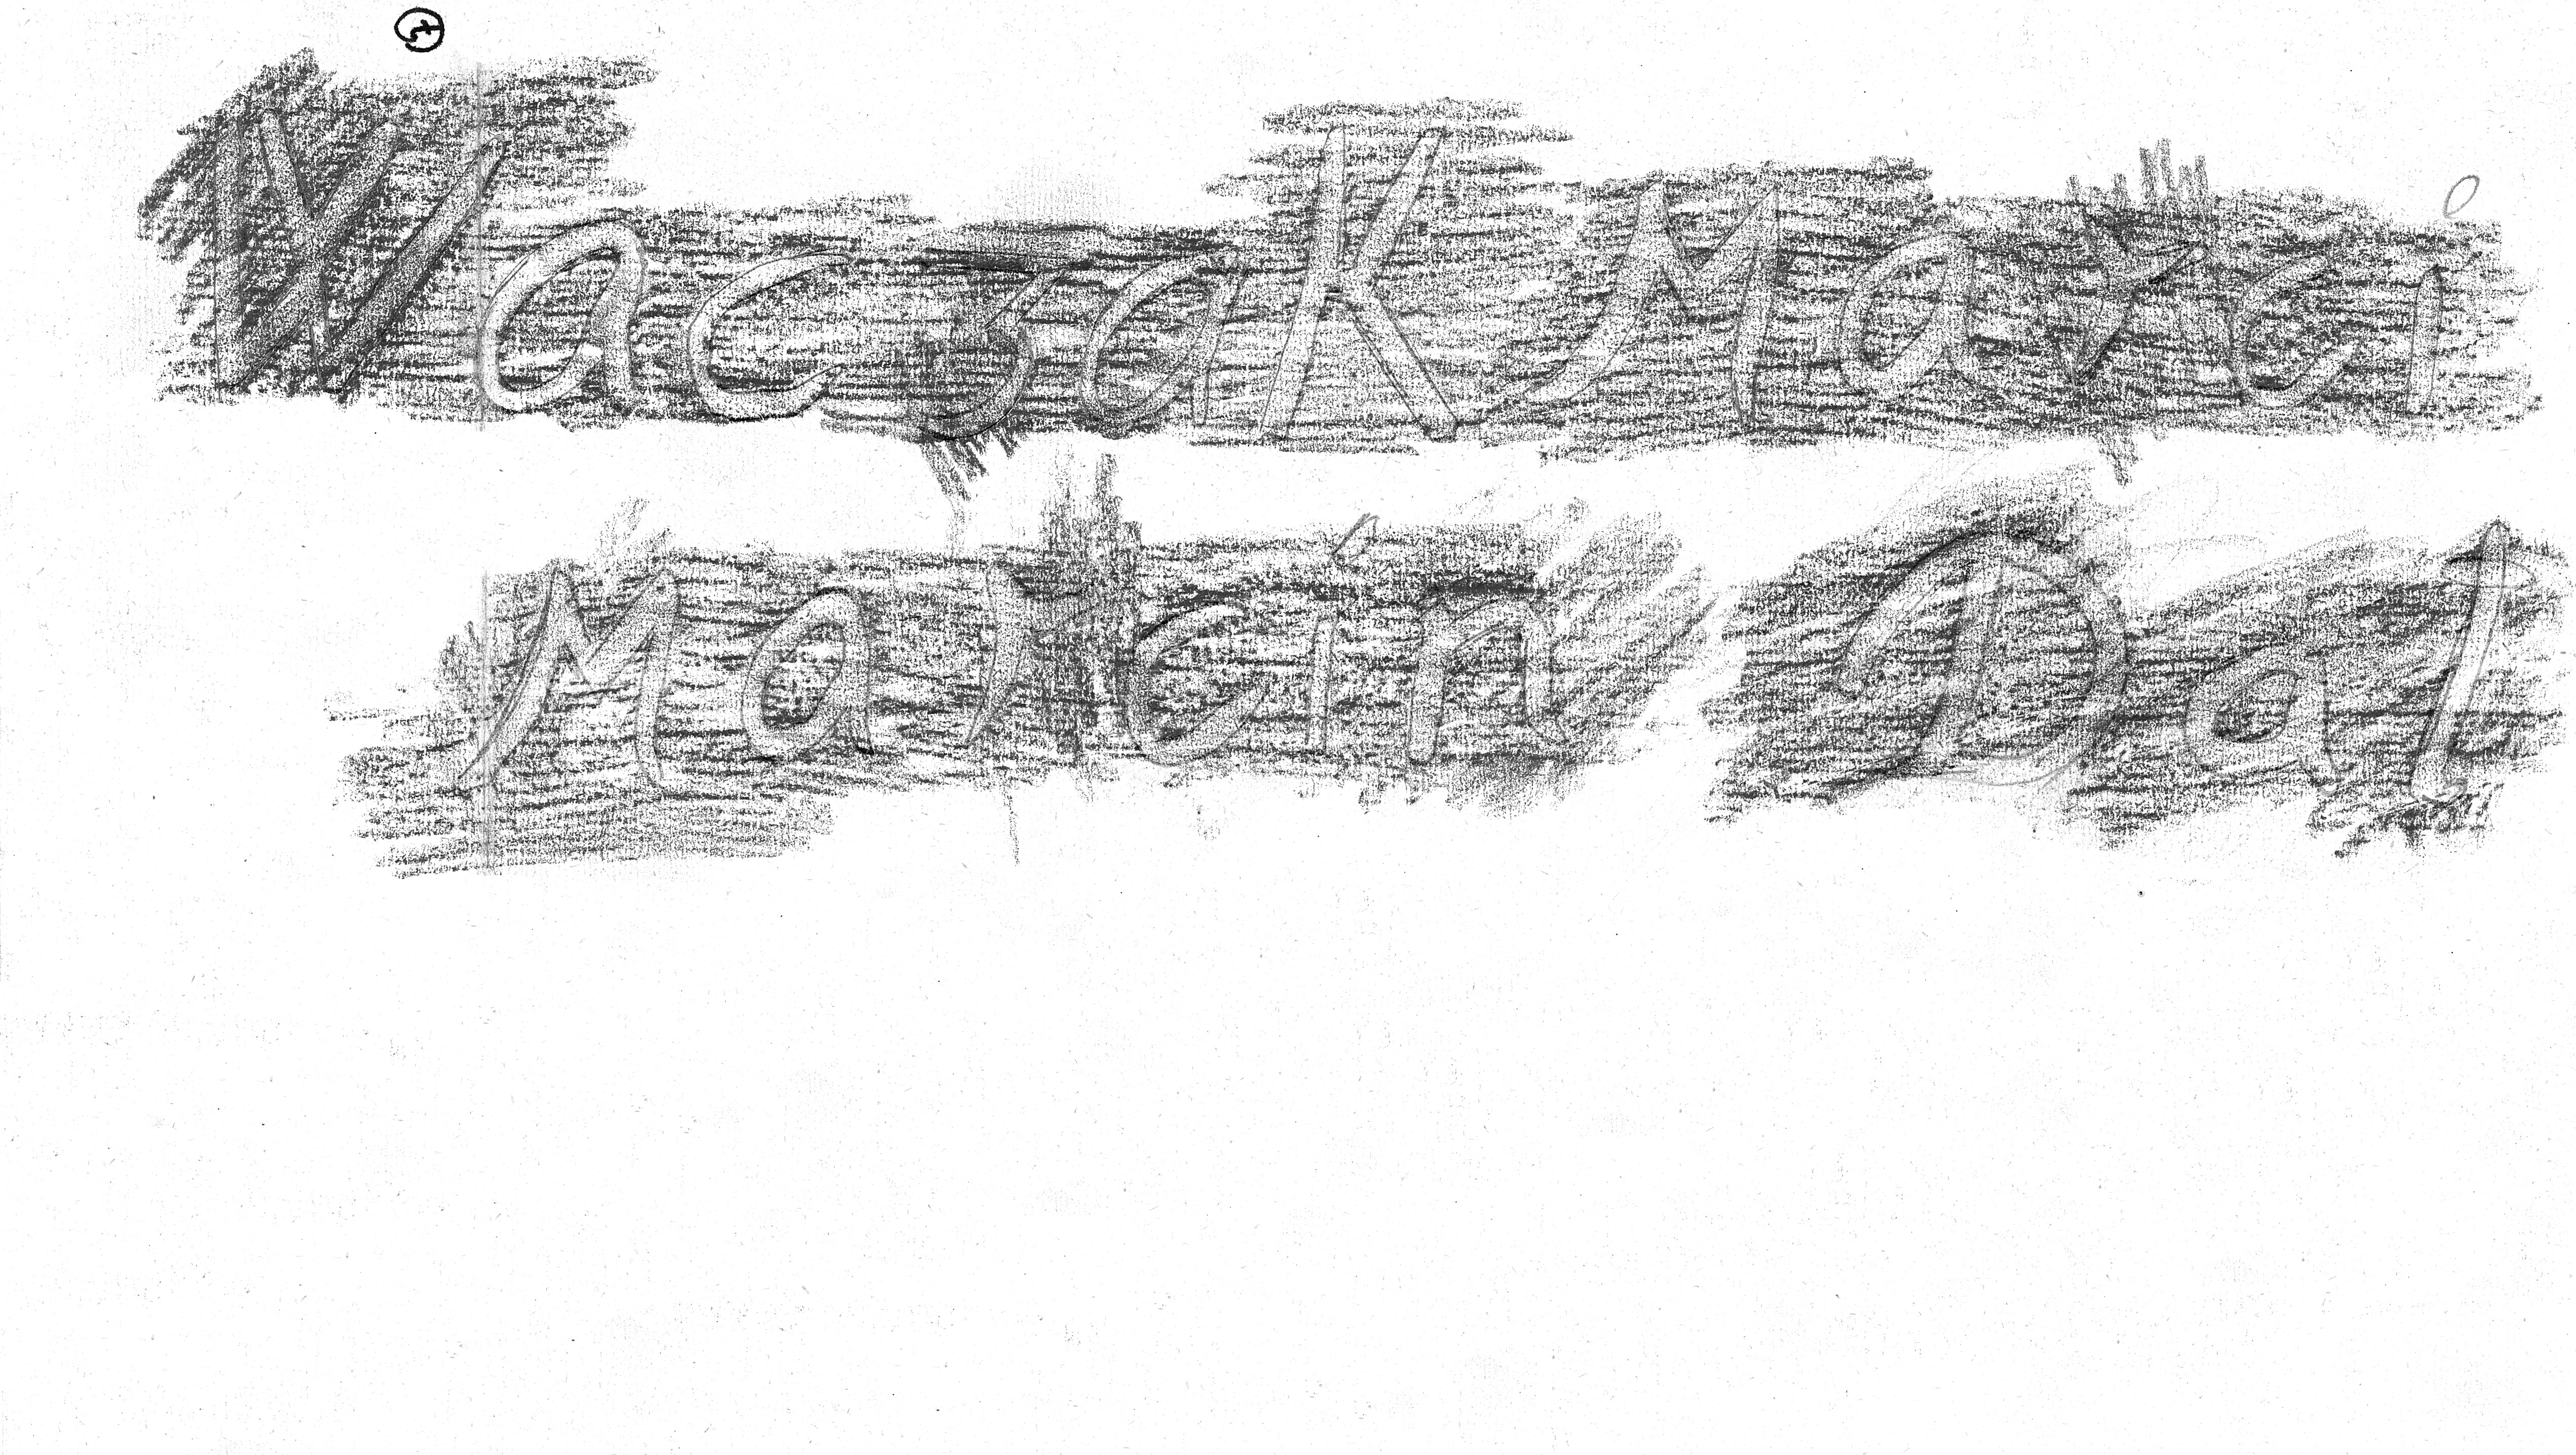 WaczaK Marci
Marcin Dal